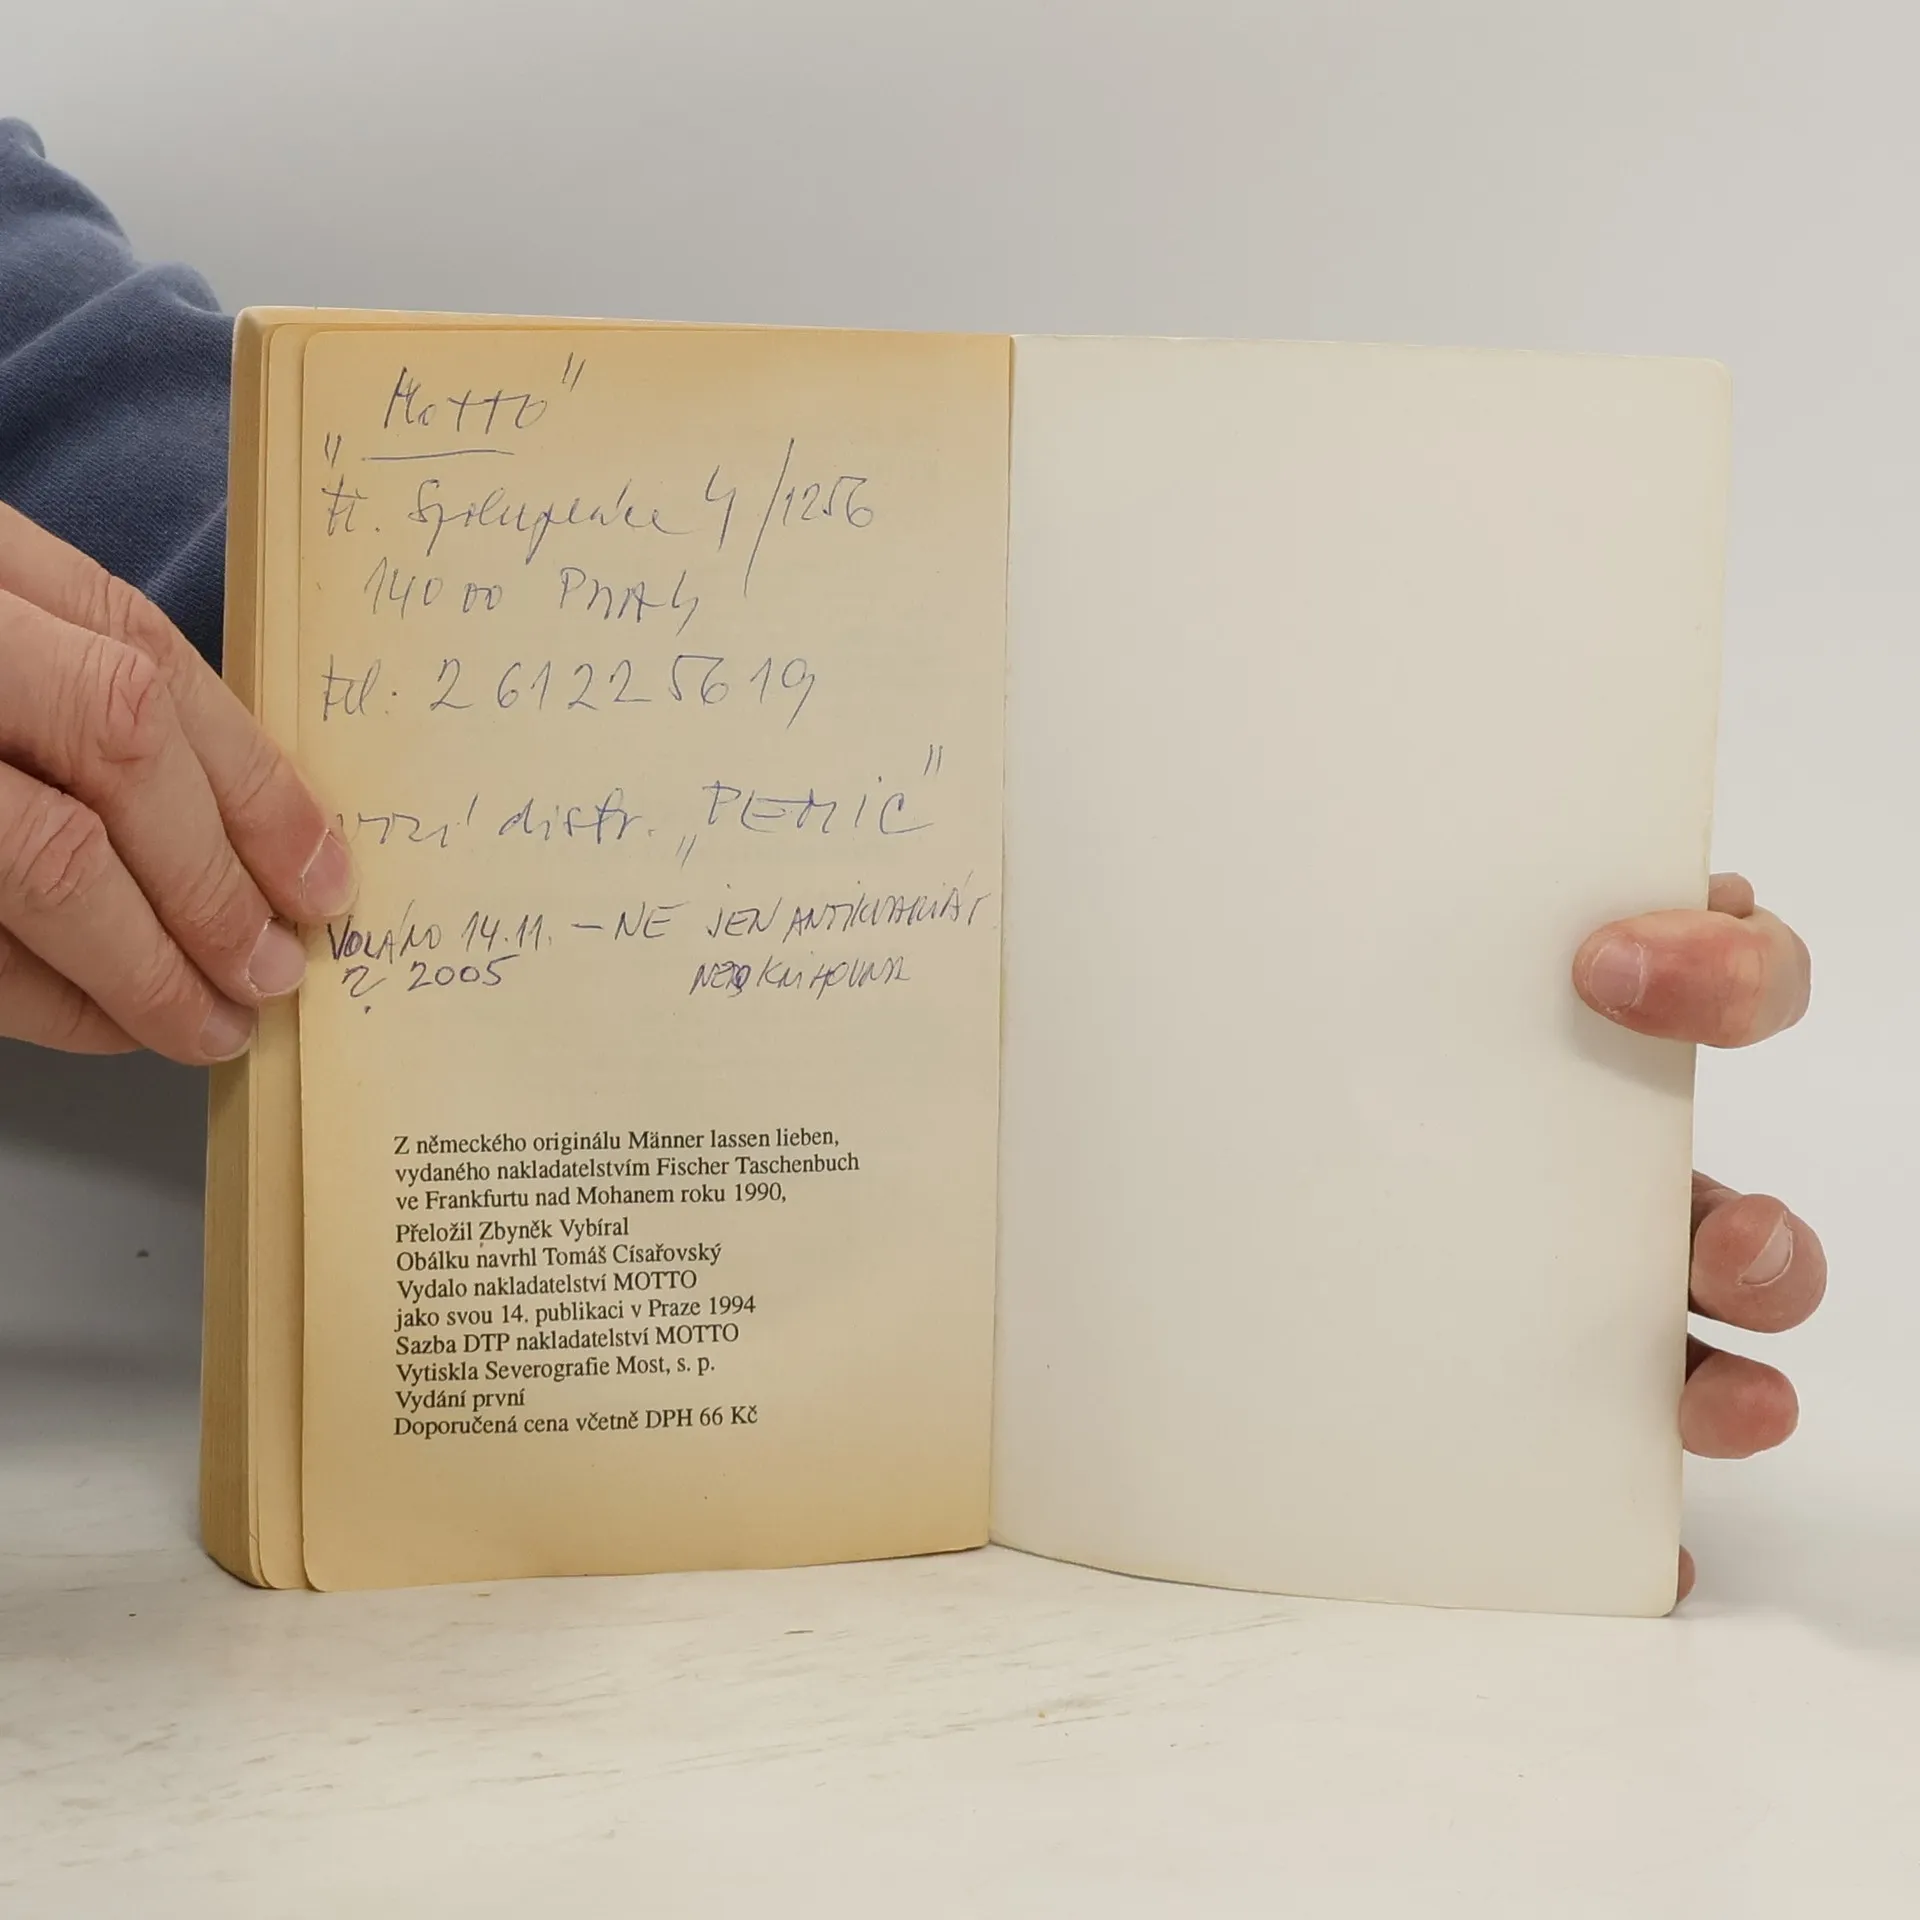 „Motto"
tř. Spolupráce 4/1256
140 00 PRHA 4
tel: 261225619
distr. „PEMIC"
VOLÁNO 14.11. – NE JEN ANTIKVARIÁT
? 2005 NEBO KNIHOVNA
Z německého originálu Männer lassen lieben,
vydaného nakladatelstvím Fischer Taschenbuch
ve Frankfurtu nad Mohanem roku 1990,
Přeložil Zbyněk Vybíral
Obálku navrhl Tomáš Císařovský
Vydalo nakladatelství MOTTO
jako svou 14. publikaci v Praze 1994
Sazba DTP nakladatelství MOTTO
Vytiskla Severografie Most, s. p.
Vydání první
Doporučená cena včetně DPH 66 Kč